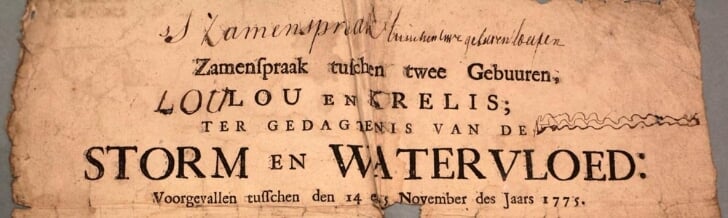 Zamenspraak tusschen twe geburen
Zamenspraak tuſſchen twee Gebuuren,
LOU LOU EN KRELIS;
TER GEDAGTENIS VAN DE
STORM EN WATERVLOED:
Voorgevallen tuſſchen den 14 November des Jaars 1775.